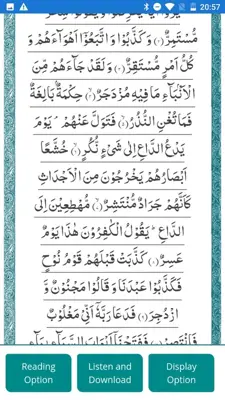 20:57
مُّسْتَمِرٌّ وَكَذَّبُوْا وَاتَّبَعُوْٓا اَهْوَآءَهُمْ وَ
كُلُّ اَمْرٍ مُّسْتَقِرٌّ وَلَقَدْ جَآءَهُمْ مِّنَ
الْاَنْۢبَآءِ مَا فِيْهِ مُزْدَجَرٌ حِكْمَةٌۢ بَالِغَةٌ
فَمَا تُغْنِ النُّذُرُ فَتَوَلَّ عَنْهُمْ ۘ يَوْمَ
يَدْعُ الدَّاعِ اِلٰى شَيْءٍ نُّكُرٍ خُشَّعًا
اَبْصَارُهُمْ يَخْرُجُوْنَ مِنَ الْاَجْدَاثِ
كَاَنَّهُمْ جَرَادٌ مُّنْتَشِرٌ مُّهْطِعِيْنَ اِلَى
الدَّاعِ ؕ يَقُوْلُ الْكٰفِرُوْنَ هٰذَا يَوْمٌ
عَسِرٌ كَذَّبَتْ قَبْلَهُمْ قَوْمُ نُوْحٍ
فَكَذَّبُوْا عَبْدَنَا وَقَالُوْا مَجْنُوْنٌ وَّ
ازْدُجِرَ فَدَعَا رَبَّهٗٓ اَنِّيْ مَغْلُوْبٌ
Reading Option
Listen and Download
Display Option